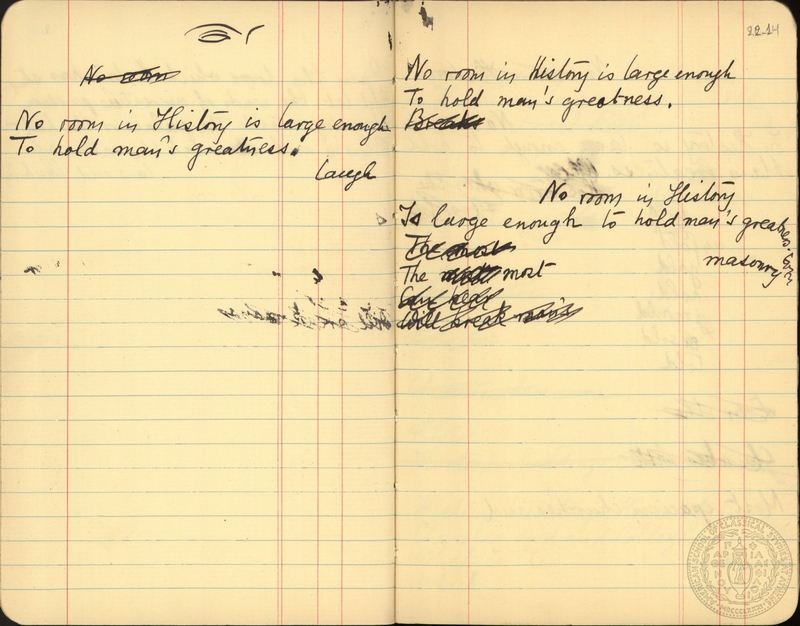 No room
No room in History is large enough
To hold man's greatness.
Laugh
22-14
No room in History is large enough
To hold man's greatness.
Breaks
No room in History
Is large enough to hold man's greatness.
The most
masonry
The most
Will break man's